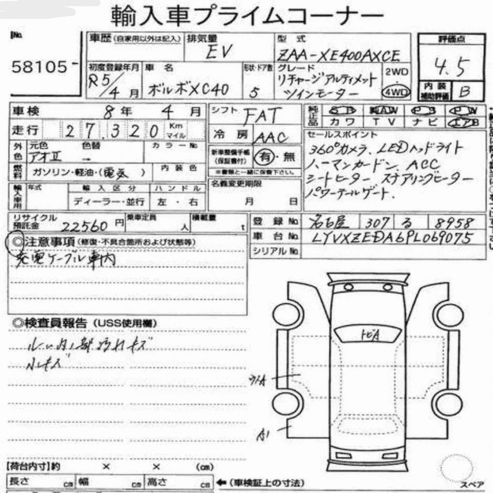 輸入車プライムコーナー
58105-
車歴 (自家用以外は記入) 排気量 EV 型式 ZAA-XE400AXCE 評価点 4.5
初度登録年月 R5/4月 車名 ボルボXC40 形状・ドア数 5 グレード リチャージアルティメット ツインモーター 2WD 4WD 内装補助評価 B
車検 8年 4月 シフト FAT
走行 27,320 Km マイル 冷房 AAC 純正品 カワ TV ナビ
外色 元色 アオII 色替 カラーNo
セールスポイント
360°カメラ、LEDヘッドライト
ハーマンカードン、ACC
シートヒーター ステアリングヒーター
パワーテールゲート.
燃料 ガソリン・軽油・(電気) 内装色
新車整備手帳(保証書付) 有・無
輸入車用 年式 輸入区分 ディーラー・並行 ハンドル 左・右
名義変更期限 月 日
リサイクル預託金 22560円 乗車定員 人 積載量
登録No 名古屋 307 る 8958
車台No LYVXZEDA6PL069075
シリアルNo
◎注意事項 (修復・不具合箇所および状態等)
充電ケーブル車内
◎検査員報告 (USS使用欄)
小キズ
トビA
ワレA
A1
【荷台内寸】約 × × (cm)
長さ cm 幅 cm 高さ cm ←(車検証上の寸法)
スペア